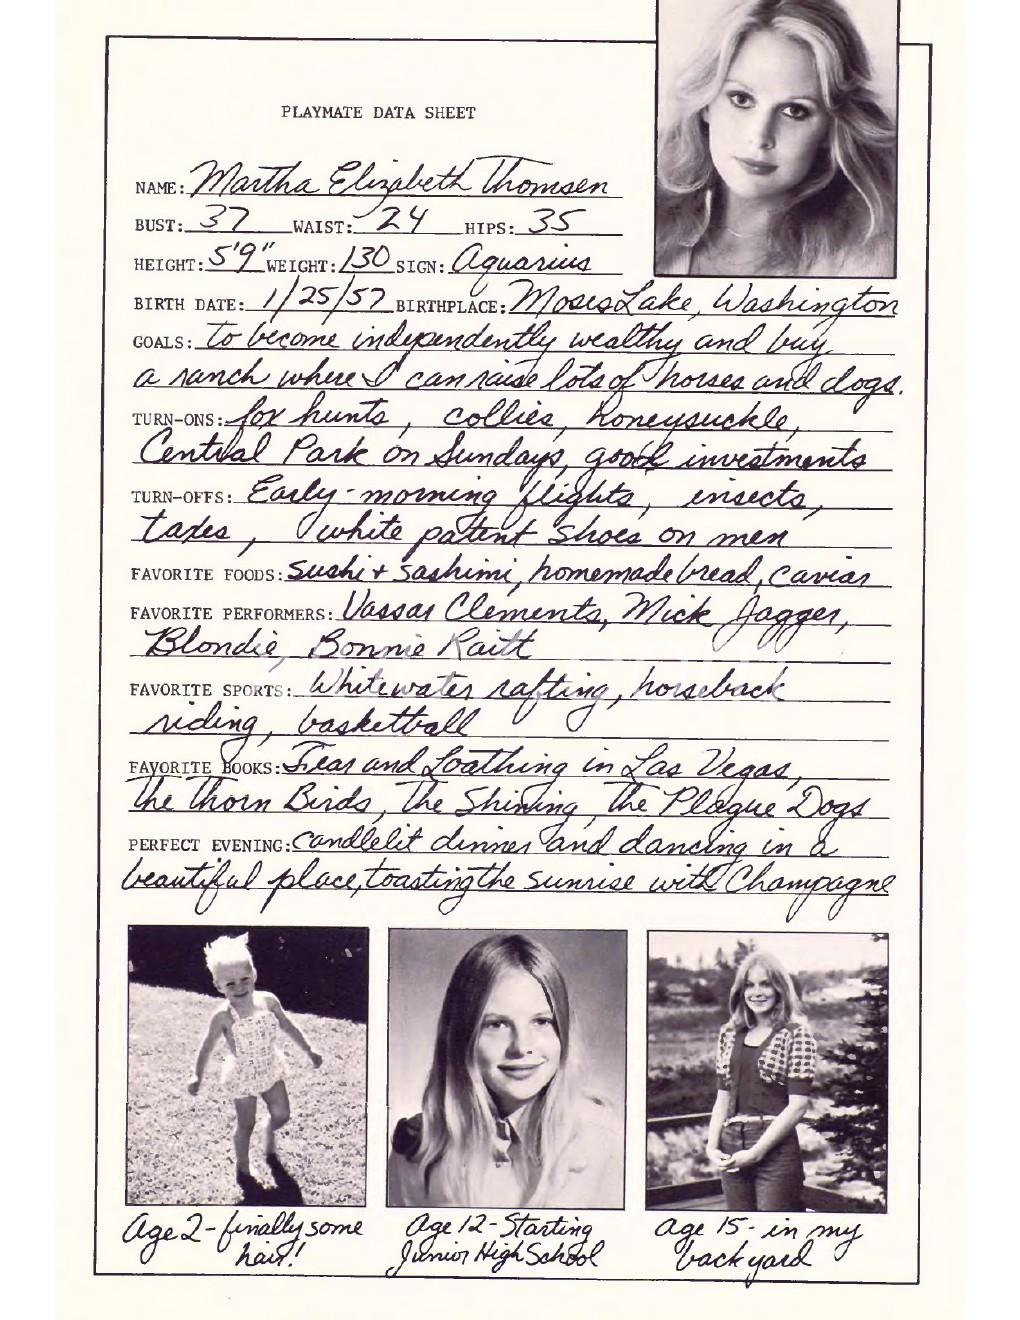 PLAYMATE DATA SHEET
NAME: Martha Elizabeth Thomsen
BUST: 37 WAIST: 24 HIPS: 35
HEIGHT: 5'9" WEIGHT: 130 SIGN: Aquarius
BIRTH DATE: 1/25/57 BIRTHPLACE: Moses Lake, Washington
GOALS: to become independently wealthy and buy
a ranch where I can raise lots of horses and dogs.
TURN-ONS: fox hunts, collies, honeysuckle,
Central Park on Sundays, good investments
TURN-OFFS: Early-morning flights, insects,
taxes, white patent shoes on men
FAVORITE FOODS: sushi + sashimi, homemade bread, caviar
FAVORITE PERFORMERS: Vassar Clements, Mick Jagger,
Blondie, Bonnie Raitt
FAVORITE SPORTS: Whitewater rafting, horseback
riding, basketball
FAVORITE BOOKS: Fear and Loathing in Las Vegas,
The Thorn Birds, The Shining, The Plague Dogs
PERFECT EVENING: candlelit dinner and dancing in a
beautiful place, toasting the sunrise with Champagne
Age 2 - finally some
hair!
Age 12 - Starting
Junior High School
age 15 - in my
back yard